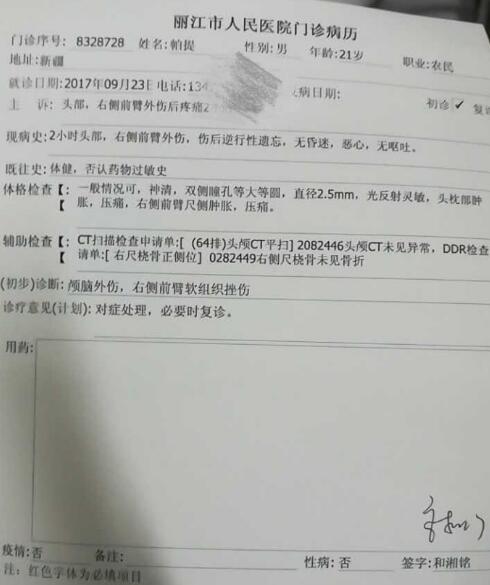 丽江市人民医院门诊病历
门诊序号: 8328728 姓名:帕提 性别:男 年龄:21岁 职业:农民
地址:新疆
就诊日期:2017年09月23日 电话:134 病日期: 初诊 ✓ 复
主 诉: 头部,右侧前臂外伤后疼痛2
现病史:2小时头部,右侧前臂外伤,伤后逆行性遗忘,无昏迷,恶心,无呕吐。
既往史:体健,否认药物过敏史
体格检查【: 一般情况可,神清,双侧瞳孔等大等圆,直径2.5mm,光反射灵敏,头枕部肿
【 胀,压痛,右侧前臂尺侧肿胀,压痛。
辅助检查【: CT扫描检查申请单:[ (64排)头颅CT平扫] 2082446头颅CT未见异常,DDR检查
【 请单:[ 右尺桡骨正侧位] 0282449右侧尺桡骨未见骨折
(初步)诊断: 颅脑外伤,右侧前臂软组织挫伤
诊疗意见(计划): 对症处理,必要时复诊。
用药:
疫情:否 备注: 性病: 否 签字:和湘铭
注: 红色字体为必填项目